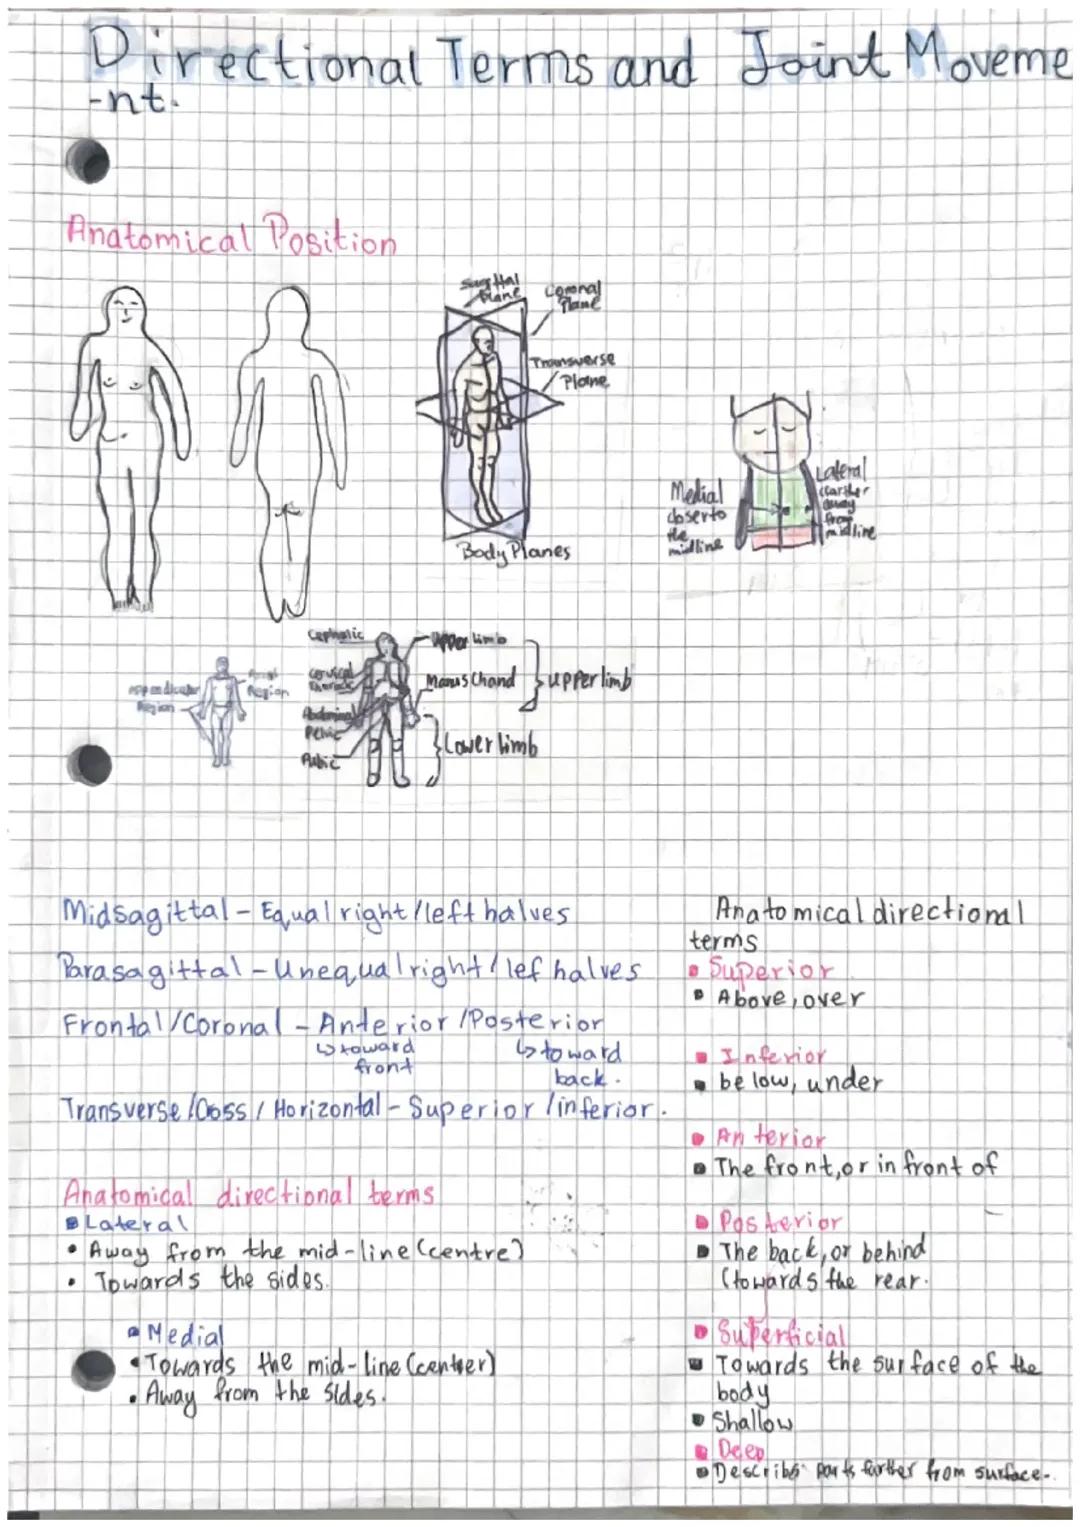 Directional Terms and Joint Moveme
-nt.
Anatomical Position
Sagittal
Plane
Coronal
Plane
Transverse
Plane
Body Planes
Medial
closer to
the
midline
Lateral
farther
away
from
midline
Appendicular
Region
Region
Cephalic
Cervical
Thoracic
Abdominal
Pelvic
Pubic
Upper limb
Manus (hand
upper limb
Lower limb
Midsagittal - Equal right/left halves
Parasagittal - Unequal right/lef halves
Frontal/Coronal - Anterior/Posterior
↳ toward
front
↳ toward
back.
Transverse/Cross/Horizontal - Superior/inferior.
Anatomical directional terms
Lateral
• Away from the mid-line (centre)
• Towards the sides.
Medial
• Towards the mid-line
• Away from the sides.
Anatomical directional
terms
Superior
Above, over
Inferior
below, under
Anterior
The front, or in front of
Posterior
The back, or behind
(towards the rear.
Superficial
Towards the surface of the
body
Shallow
Deep
Describes parts farther from surface.